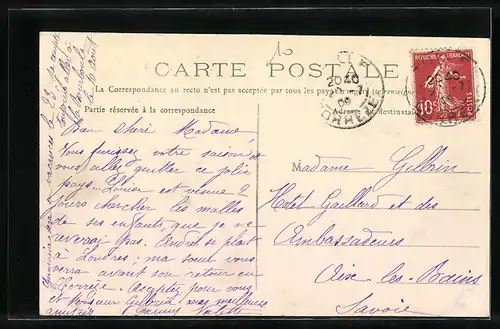 CARTE POSTALE
La Correspondance au recto n'est pas acceptée par tous les pays étrangers (se renseigner
Partie réservée à la correspondance
Adresse du destinataire
REPUBLIQUE FRANÇAISE
10c
POSTES
20 40
09
CORREZE
Bien chère Madame,
Vous finissez votre saison et
vous allez quitter ce joli
pays. Louise est venue
pour chercher les malles
de ses enfants, que je ne
reverrai pas. André se plaît
à Londres; ma sœur vous
verra avant son retour en
Corrèze. Acceptez pour vous
et Monsieur Gilbrin mes meilleures
amitiés.
Madame Gilbrin
Hotel Gaillard et des
Ambassadeurs
Aix-les-Bains
Savoie
vacances le 23, je compte
le 10 août